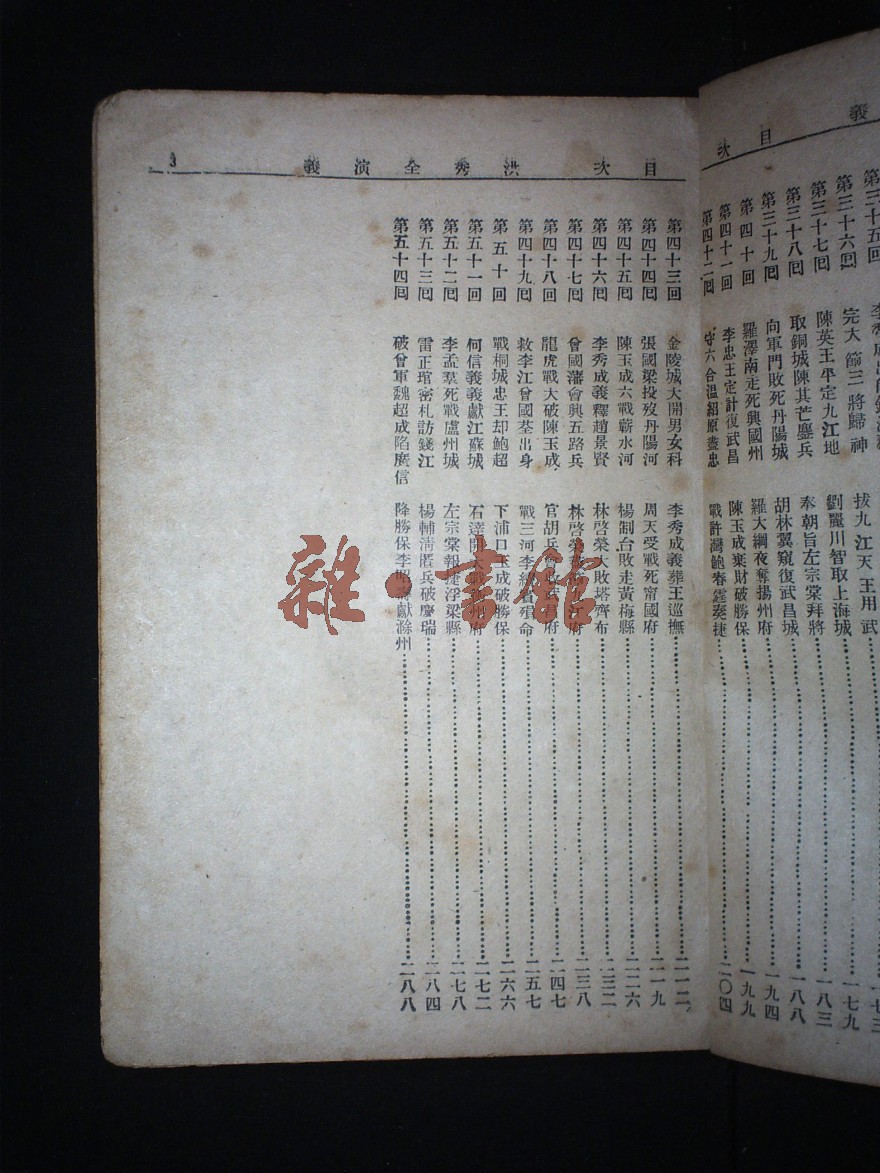 義
目次
第三十五回
第三十六回 完大節三將歸神 拔九江天王用武 一七九
第三十七回 陳英王平定九江地 劉麗川智取上海城 一八三
第三十八回 取銅城陳其芒鏖兵 奉朝旨左宗棠拜將 一八八
第三十九回 向軍門敗死丹陽城 胡林翼窺復武昌城 一九四
第四十回 羅澤南走死興國州 羅大綱夜奪揚州府 一九九
第四十一回 李忠王定計復武昌 陳玉成棄財破勝保
第四十二回 守六合溫紹原盡忠 戰許灣鮑春霆奏捷 二〇四
目次 洪秀全演義 3
第四十三回 金陵城大開男女科 李秀成義葬王巡撫 二一二
第四十四回 張國梁投歿丹陽河 周天受戰死甯國府 二一九
第四十五回 陳玉成六戰蘄水河 楊制台敗走黃梅縣 二二六
第四十六回 李秀成義釋趙景賢 林啓榮大敗塔齊布 二三二
第四十七回 曾國藩會興五路兵 林啓榮 府 二三八
第四十八回 龍虎戰大破陳玉成 官胡兵會 府 二四七
第四十九回 救李江曾國荃出身 戰三河李 殞命 二五七
第五十回 戰桐城忠王却鮑超 下浦口玉成破勝保 二六六
第五十一回 何信義義獻江蘇城 石達開 州府 二七二
第五十二回 李孟羣死戰盧州城 左宗棠報捷浮梁縣 二七八
第五十三回 雷正琯密札訪錢江 楊輔淸匿兵破慶瑞 二八四
第五十四回 破曾軍魏超成陷廣信 降勝保李昭壽獻滁州 二八八
雜·書館